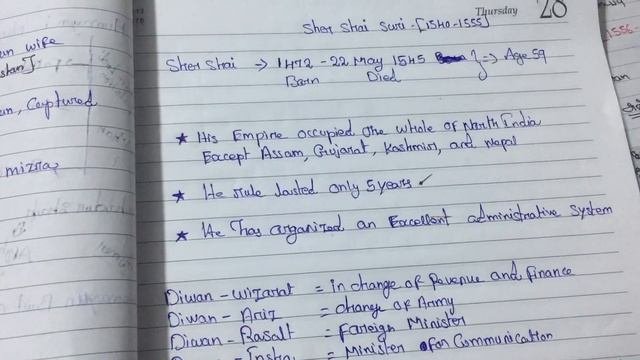 Thursday 28
Sher Shai Suri - [1540-1555]
an wife
stan]
Sher Shai → 1472 - 22 May 1545 } => Age 59
Born Died
un, Captured
★ His Empire occupied the whole of North India
Except Assam, Gujarat, Kashmir, and Nepal
mizra
★ He rule lasted only 5 years ✓
★ He has organized an Excellent administrative System
Diwan - Wizarat = in change of Revenue and finance
Diwan - Ariz = change of Army
Diwan - Rasalt = Foreign Minister
= Minister for Communication
1556-